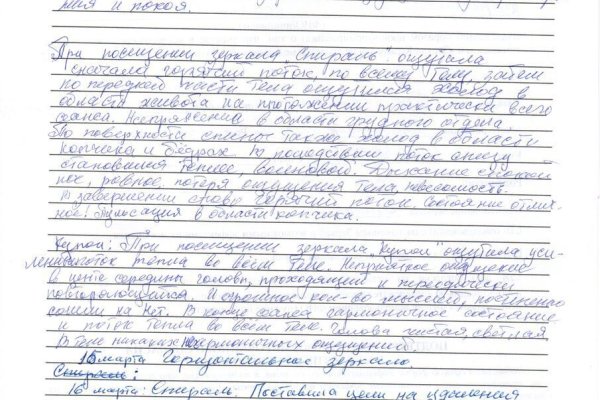 ния и покоя.
При посещении зеркала "Спираль" ощутила
сначала горячий поток, по всему телу, затем
по передней части тела ощущался холод в
области живота на протяжении практически всего
сеанса. Напряжение в области грудного отдела.
По поверхности спины также холод в области
копчика и бёдрах. В последствии поток снизу
становился теплее, волновой. Дыхание спокой
ное, ровное, потеря ощущения тела, невесомость.
В завершении снова горячий поток. Состояние отлич-
ное. Пульсация в области копчика.
Купол: При посещении зеркала "Купол" ощутила уси-
ление поток тепла во всём теле. Неприятное ощущение
в центе середины головы, проходящий и периодически
повторяющийся. И огромное кол-во мыслей, постепенно
сошли на нет. В конце сеанса гармоничное состояние
и поток тепла во всём теле. Голова чистая, светлая,
в теле никаких негармоничных ощущений.
15 марта Горизонтальное зеркало.
Спираль:
16 марта: Спираль. Поставила цели на удаления